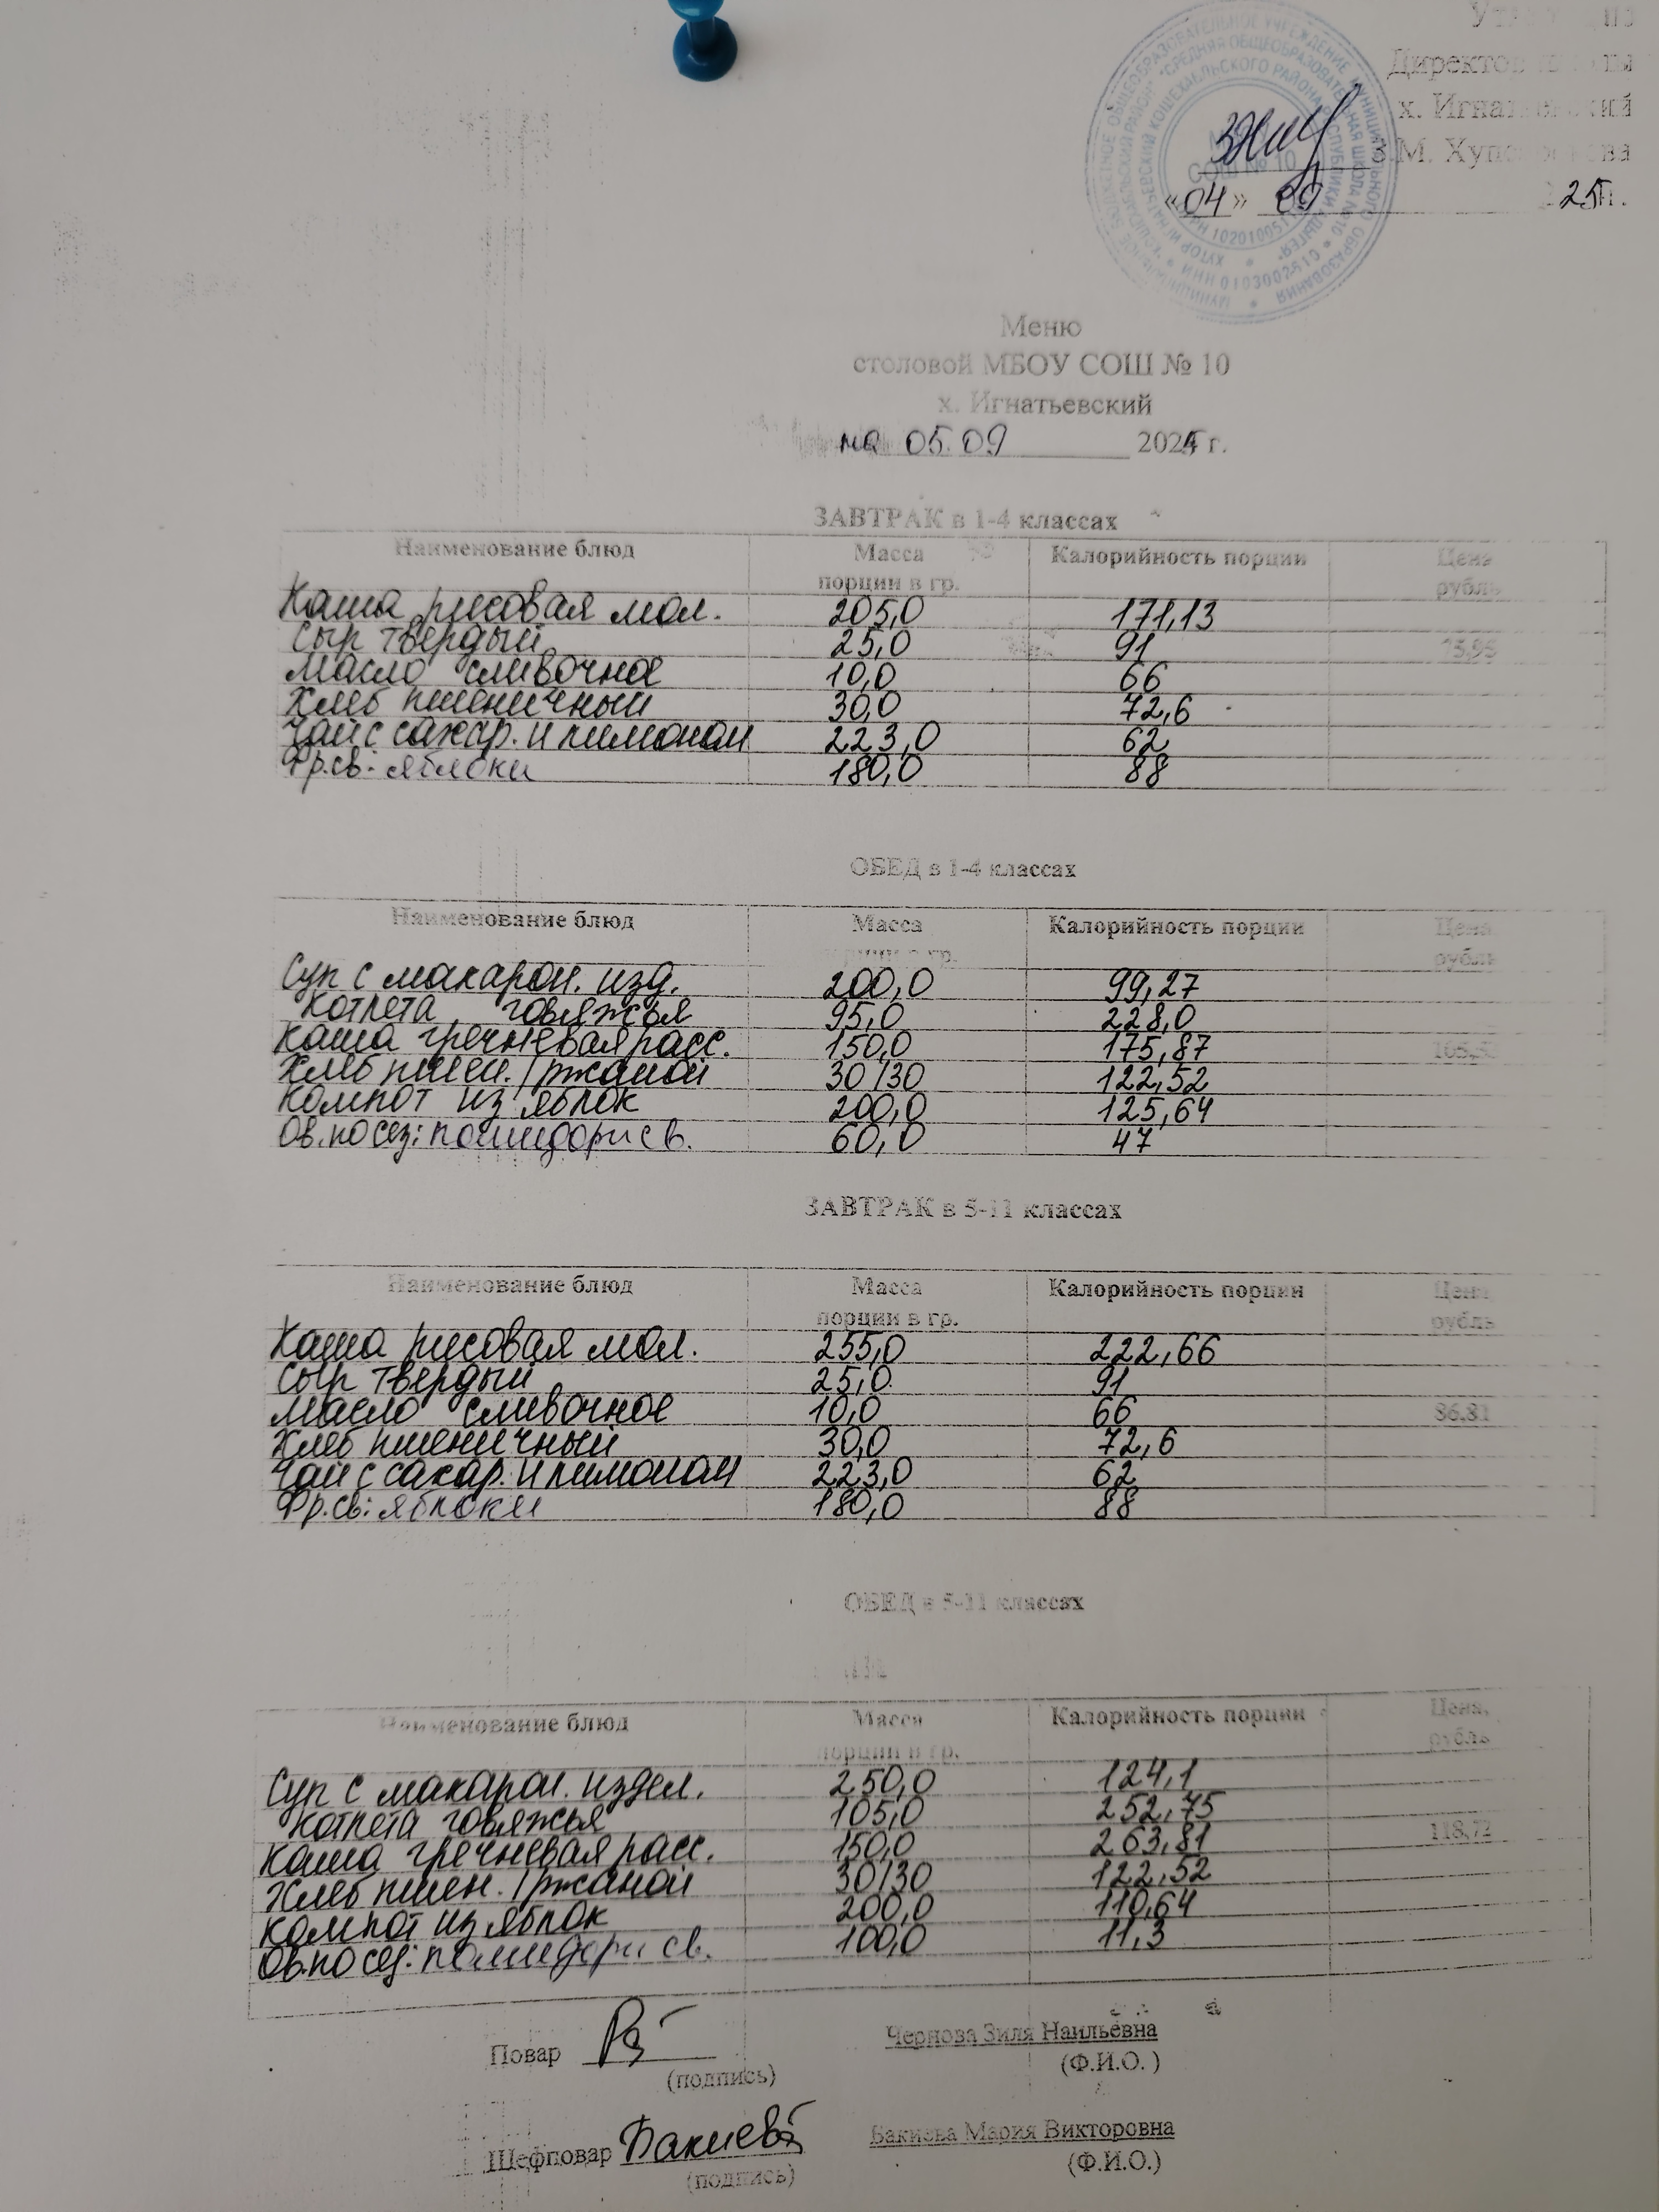 Директор
х. Игнатьевский
З.М.
«04» 09 25 г.
СОШ № 10
Меню
столовой МБОУ СОШ № 10
х. Игнатьевский
на 05.09 2025 г.
ЗАВТРАК в 1-4 классах
Наименование блюд Масса порции в гр. Калорийность порции Цена рубль
Каша рисовая мол. 205,0 171,13
Сыр твердый 25,0 91
Масло сливочное 10,0 66
Хлеб пшеничный 30,0 72,6
Чай с сахар. и лимоном 223,0 62
Фр.св: яблоки 180,0 88
ОБЕД в 1-4 классах
Наименование блюд Масса порции в гр. Калорийность порции Цена рубль
Суп с макарон. изд. 200,0 99,27
Котлета говяжья 95,0 228,0
Каша гречневая расс. 150,0 175,87
Хлеб пшен./ржаной 30/30 122,52
Компот из яблок 200,0 125,64
Ов.по сез: помидоры св. 60,0 47
ЗАВТРАК в 5-11 классах
Наименование блюд Масса порции в гр. Калорийность порции Цена рубль
Каша рисовая мол. 255,0 222,66
Сыр твердый 25,0 91
Масло сливочное 10,0 66 86,81
Хлеб пшеничный 30,0 72,6
Чай с сахар. и лимоном 223,0 62
Фр.св: яблоки 180,0 88
ОБЕД в 5-11 классах
Наименование блюд Масса порции в гр. Калорийность порции Цена, рубль
Суп с макарон. издел. 250,0 124,1
Котлета говяжья 105,0 252,75
Каша гречневая расс. 150,0 263,81 118,72
Хлеб пшен./ржаной 30/30 122,52
Компот из яблок 200,0 110,64
Ов.по сез: помидоры св. 100,0 11,3
Повар Чернова Зиля Наильевна
(подпись) (Ф.И.О.)
Шефповар Бакиева Бакиева Мария Викторовна
(подпись) (Ф.И.О.)